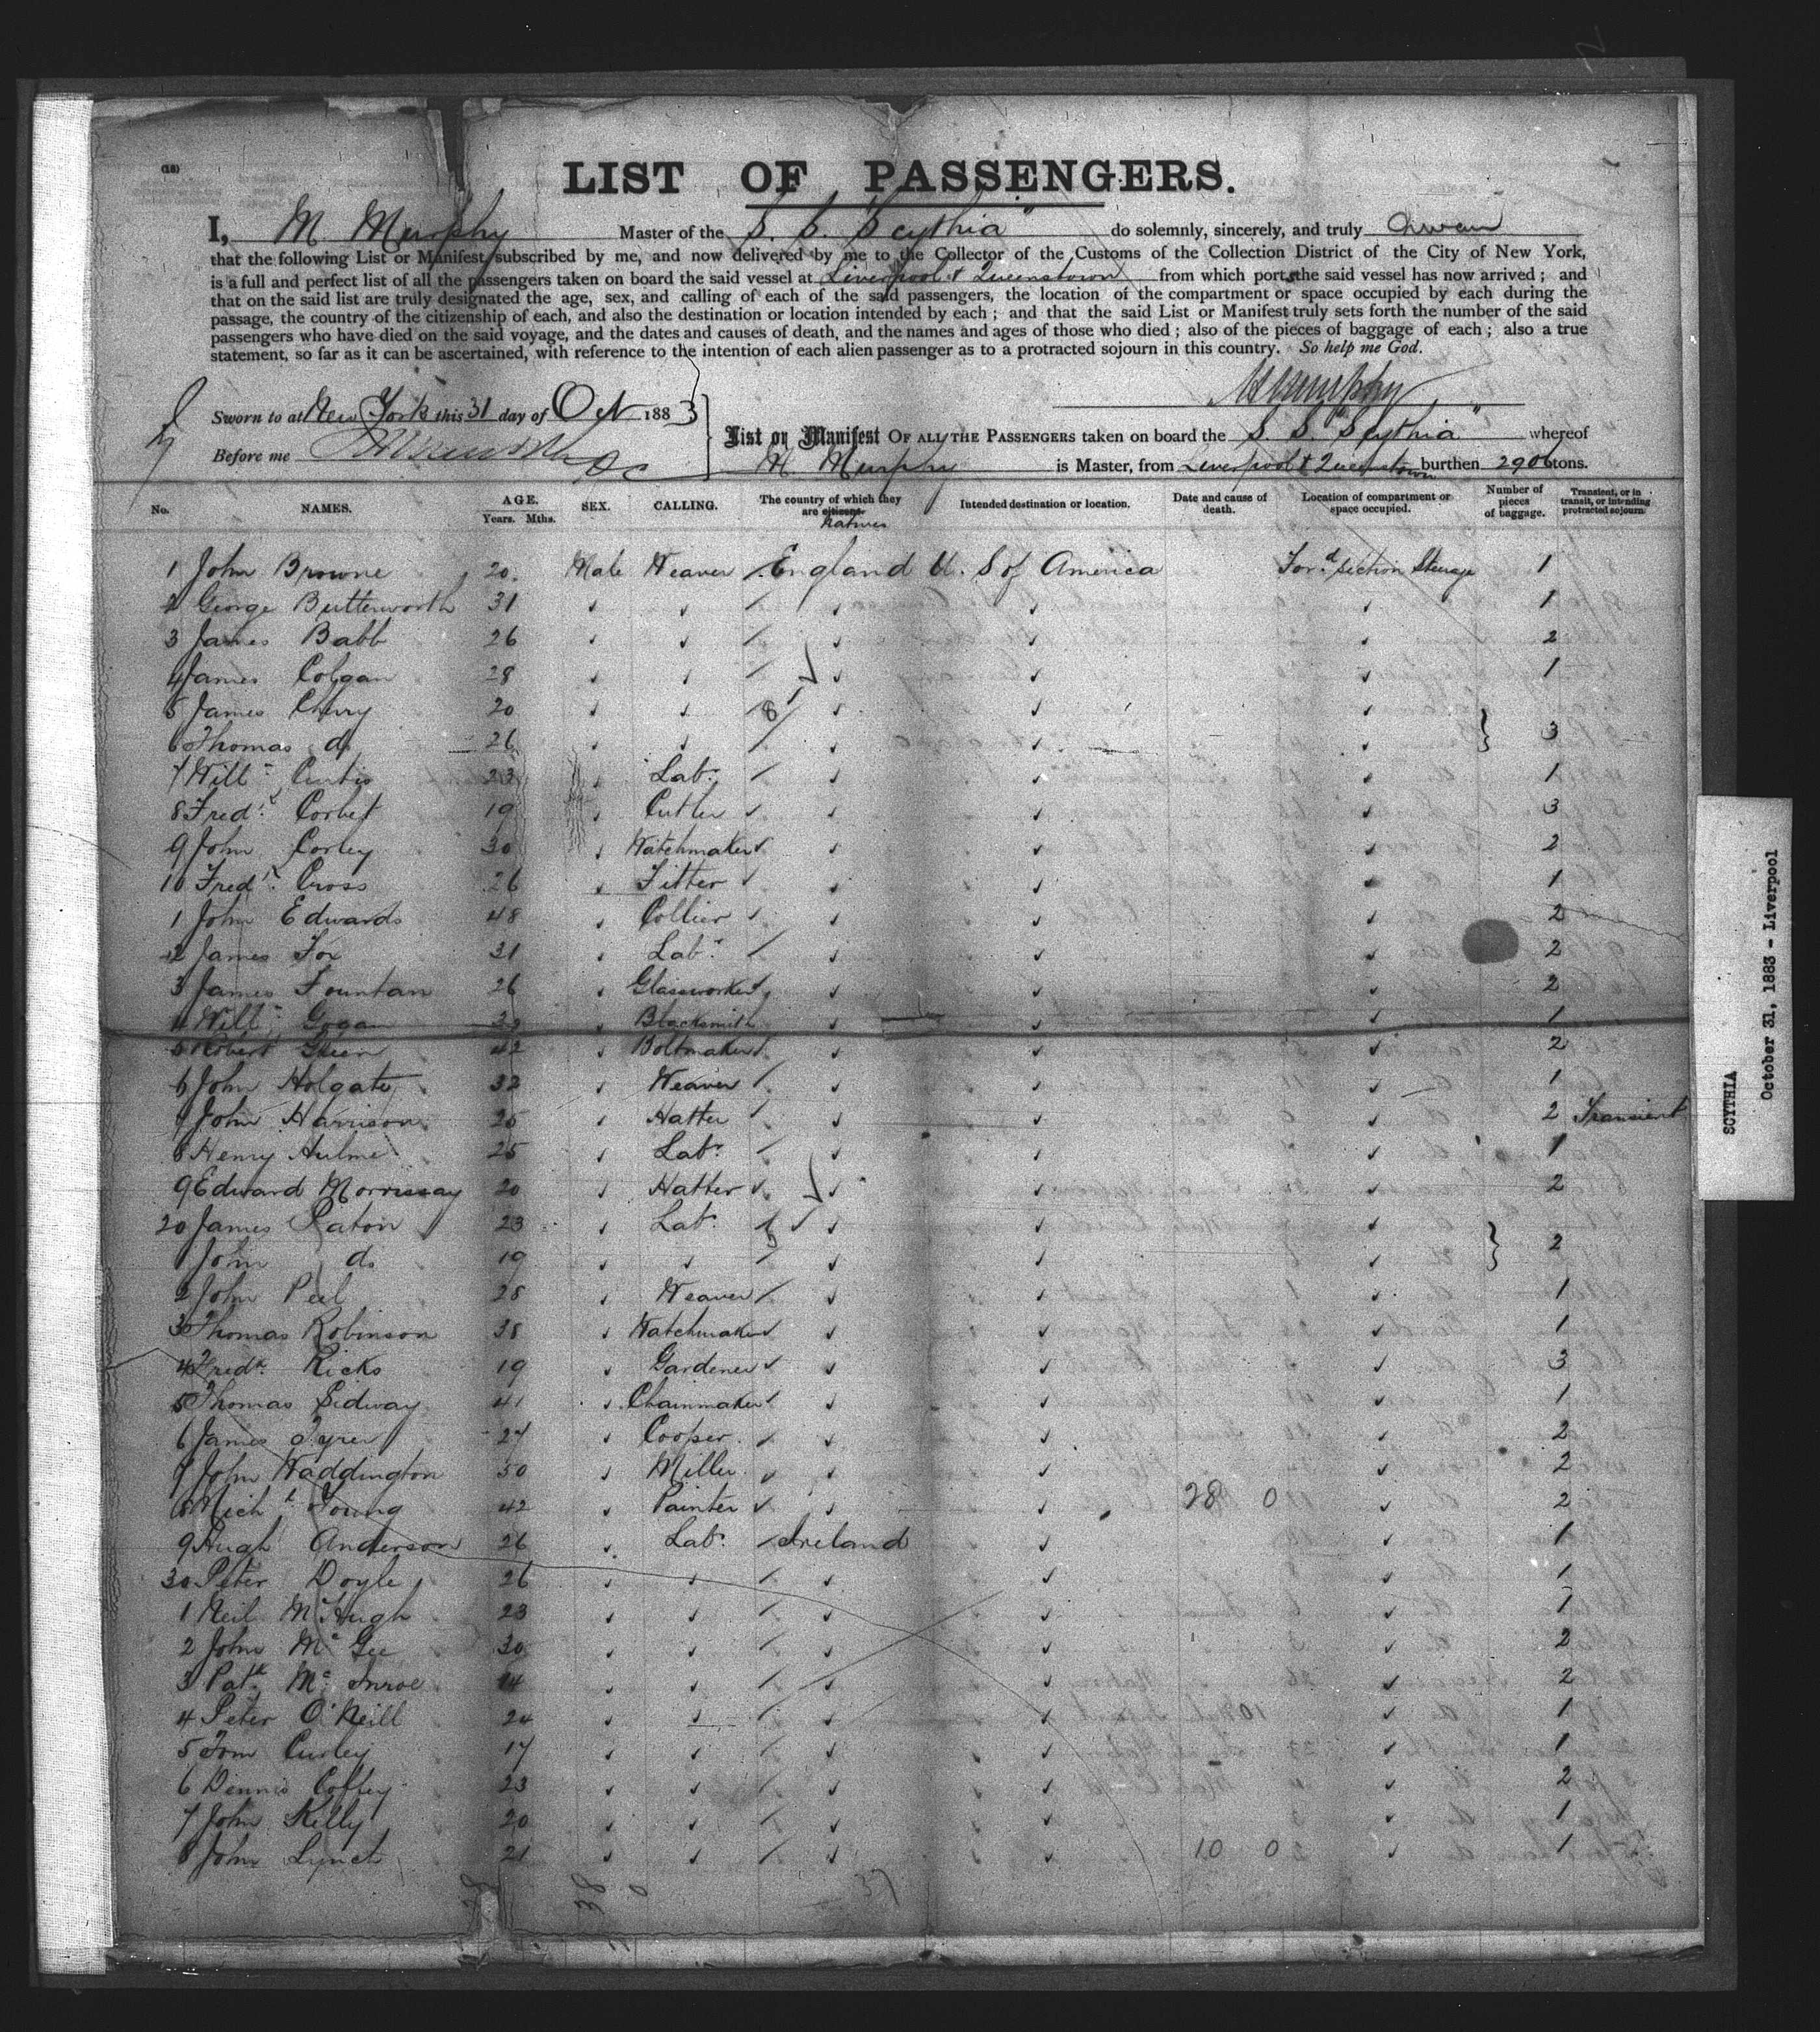 (18)
LIST OF PASSENGERS.
I, M. Murphy Master of the S. S. "Scythia" do solemnly, sincerely, and truly Swear
that the following List or Manifest, subscribed by me, and now delivered by me to the Collector of the Customs of the Collection District of the City of New York,
is a full and perfect list of all the passengers taken on board the said vessel at Liverpool & Queenstown from which ports the said vessel has now arrived; and
that on the said list are truly designated the age, sex, and calling of each of the said passengers, the location of the compartment or space occupied by each during the
passage, the country of the citizenship of each, and also the destination or location intended by each; and that the said List or Manifest truly sets forth the number of the said
passengers who have died on the said voyage, and the dates and causes of death, and the names and ages of those who died; also of the pieces of baggage of each; also a true
statement, so far as it can be ascertained, with reference to the intention of each alien passenger as to a protracted sojourn in this country. So help me God.
M Murphy
Sworn to at New York this 31 day of Oct 1883
Before me
List or Manifest OF ALL THE PASSENGERS taken on board the S. S. "Scythia" whereof
M. Murphy is Master, from Liverpool & Queenstown burthen 2906 tons.
No. NAMES. AGE. Years. Mths. SEX. CALLING. The country of which they are citizens. Natives Intended destination or location. Date and cause of death. Location of compartment or space occupied. Number of pieces of baggage. Transient, or in transit, or intending protracted sojourn.
1 John Browne 20 Male Weaver England U. S of America For.d section Steerage 1
2 George Butterworth 31 1
3 James Babb 26 2
4 James Colgan 28 1
5 James Cherry 20 8
6 Thomas do 26 3
7 Willm Curtis 23 Labr 1
8 Fredk Corbet 19 Cutler 3
9 John Corley 30 Watchmaker 2
10 Fredk Cross 26 Fitter 1
1 John Edwards 48 Collier 2
2 James Fox 31 Labr 2
3 James Fountan 26 Glassworker 2
4 Willm Gogan Blacksmith 1
5 Robert Green 42 Boltmaker 2
6 John Holgate 32 Weaver 1
7 John Harrison 25 Hatter 2 Transient
8 Henry Hulme 25 Labr 1
9 Edward Morrissay 20 Hatter 2
20 James Paton 23 Labr
1 John do 19 2
2 John Peel 28 Weaver 1
3 Thomas Robinson 38 Watchmaker 1
4 Fredk Ricks 19 Gardener 3
5 Thomas Sidway 41 Chainmaker 1
6 James Tyrer 27 Cooper 2
7 John Waddington 50 Miller 2
8 Michl Young 42 Painter 28 0 2
9 Hugh Anderson 26 Labr Ireland 1
30 Peter Doyle 26 1
1 Neil McHugh 23 1
2 John McGee 30 2
3 Patk McInroe 2
4 Peter O'Neill 24 1
5 Tom Curley 17 1
6 Dennis Coffey 23 2
7 John Kelly 20 1
8 John Lynch 21 10 0 1
37
38
0
SCYTHIA
October 31, 1883 - Liverpool